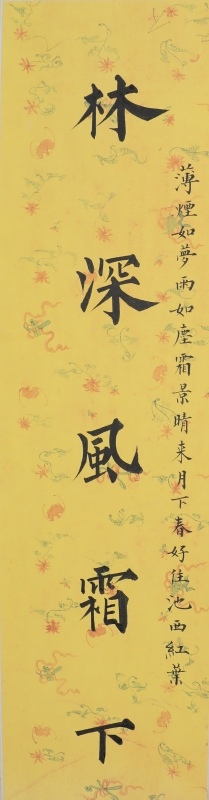 薄煙如夢雨如塵霜景晴来月下春好住池西紅葉
林深風霜下